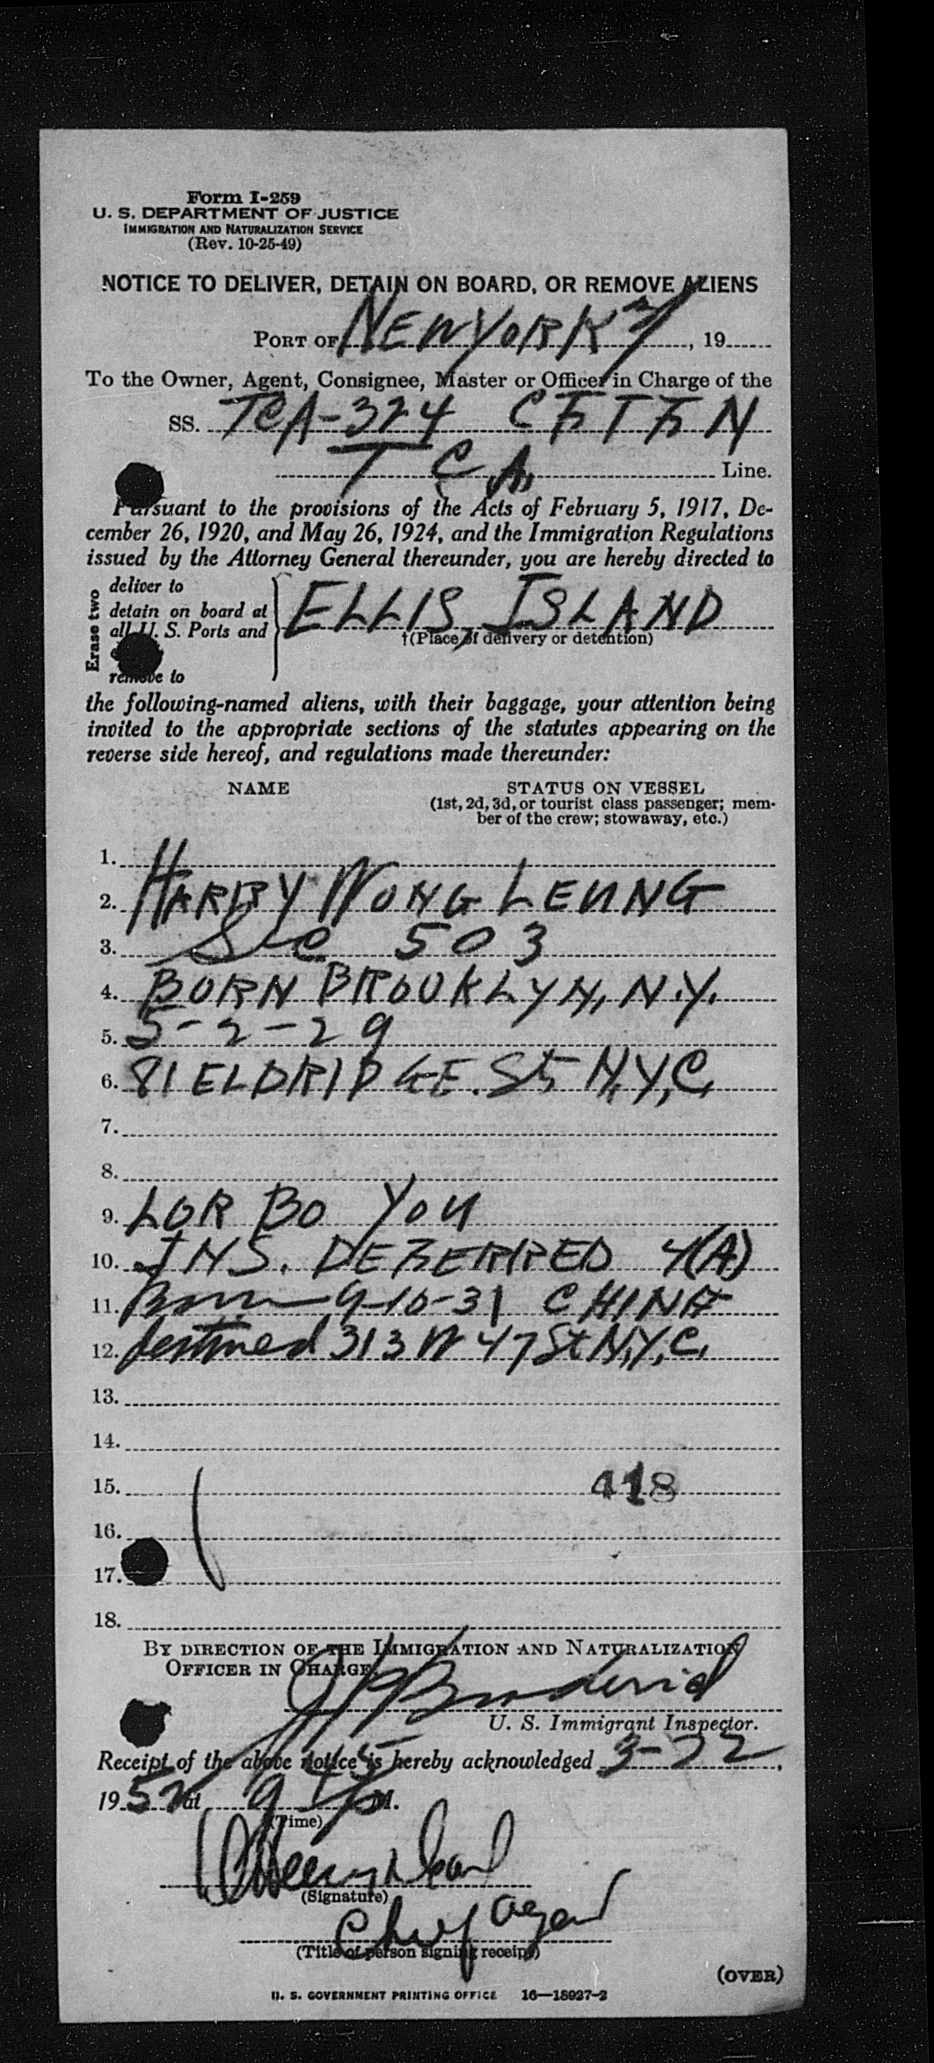 Form I-259
U. S. DEPARTMENT OF JUSTICE
IMMIGRATION AND NATURALIZATION SERVICE
(Rev. 10-25-49)
NOTICE TO DELIVER, DETAIN ON BOARD, OR REMOVE ALIENS
PORT OF NEW YORK, 19
To the Owner, Agent, Consignee, Master or Officer in Charge of the
SS. TCA-324 CFTFN
T C A. Line.
Pursuant to the provisions of the Acts of February 5, 1917, De-
cember 26, 1920, and May 26, 1924, and the Immigration Regulations
issued by the Attorney General thereunder, you are hereby directed to
Erase two
deliver to
detain on board at
all U. S. Ports and
remove to
ELLIS, ISLAND
†(Place of delivery or detention)
the following-named aliens, with their baggage, your attention being
invited to the appropriate sections of the statutes appearing on the
reverse side hereof, and regulations made thereunder:
NAME STATUS ON VESSEL
(1st, 2d, 3d, or tourist class passenger; mem-
ber of the crew; stowaway, etc.)
1.
2. HARRY WONG LEUNG
3. Sec 503
4. BORN BROOKLYN, N.Y.
5. 5-2-29
6. 81 ELDRIDGE. St N.Y.C.
7.
8.
9. LOR BO YOU
10. INS. DEFERRED 4(A)
11. Born 9-10-31 CHINA
12. destined 313 W 47 St N.Y.C.
13.
14.
15. 418
16.
17.
18.
BY DIRECTION OF THE IMMIGRATION AND NATURALIZATION
OFFICER IN CHARGE
U. S. Immigrant Inspector.
Receipt of the above notice is hereby acknowledged 3-22,
1952 at 9 45 P M.
(Time)
(Signature)
Chief agent
(Title of person signing receipt)
(OVER)
U. S. GOVERNMENT PRINTING OFFICE 16—18927-2